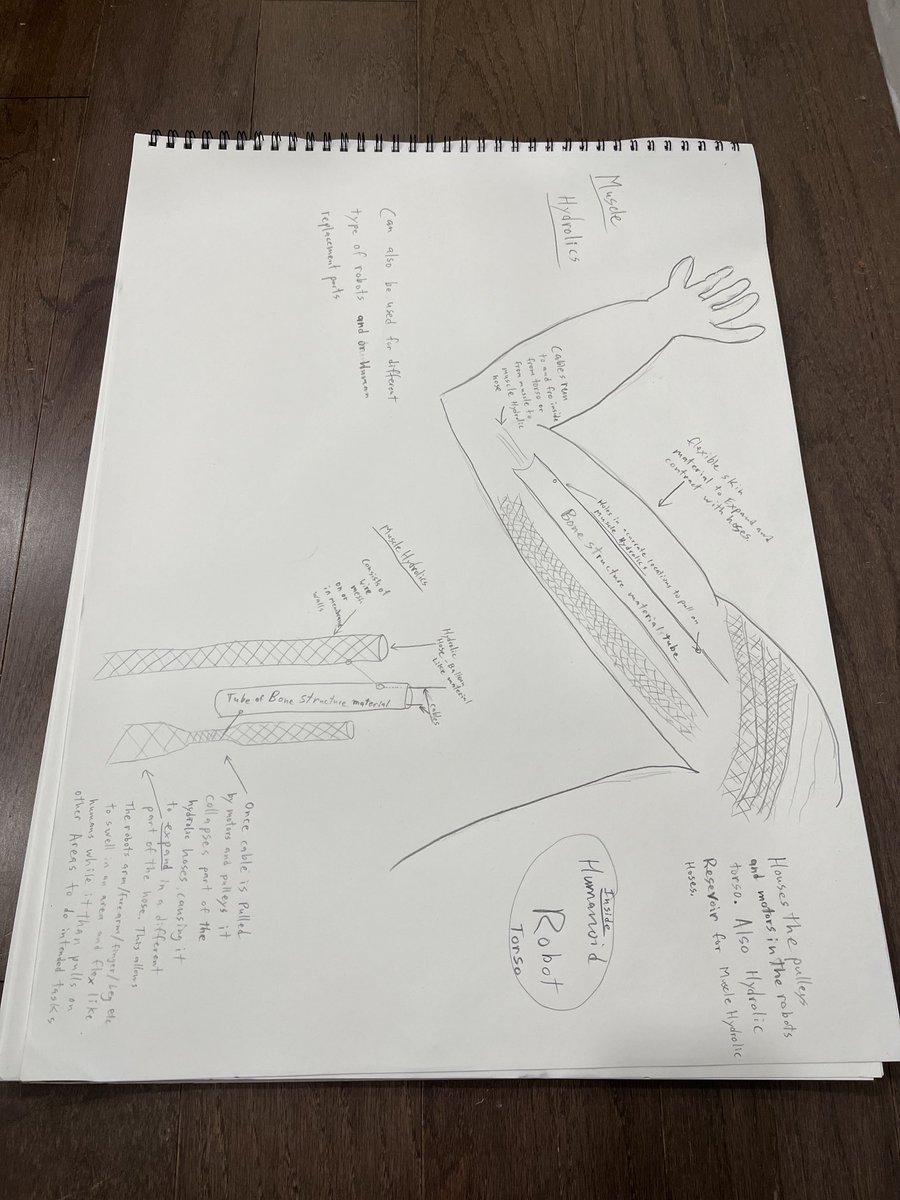 Muscle
Hydrolics
Can also be used for different
type of robots and or Human
replacement parts
Cables run
to and fro inside
from torso or
from muscle to
muscle Hydrolic
hose
flexible skin
material to Expand and
contract with hoses.
Holes in accurate locations to pull on
muscle Hydrolics
Bone structure material tube
Muscle Hydrolics
Consists of
wire
mesh
on or
in membrane
walls
Hydrolic Balloon
Hose Like material
cables
Tube of Bone Structure material
Once cable is Pulled
by motors and pulleys it
collapses part of the
hydrolic hoses, causing it
to expand in a different
part of the hose. This allows
The robots arm/forearm/finger/Leg etc
to swell in an area and flex like
humans while it than pulls on
other Areas to do intended tasks
Houses the pulleys
and motors in the robots
torso. Also Hydrolic
Reservoir for Muscle Hydrolic
Hoses.
Inside
Humanoid
Robot
Torso